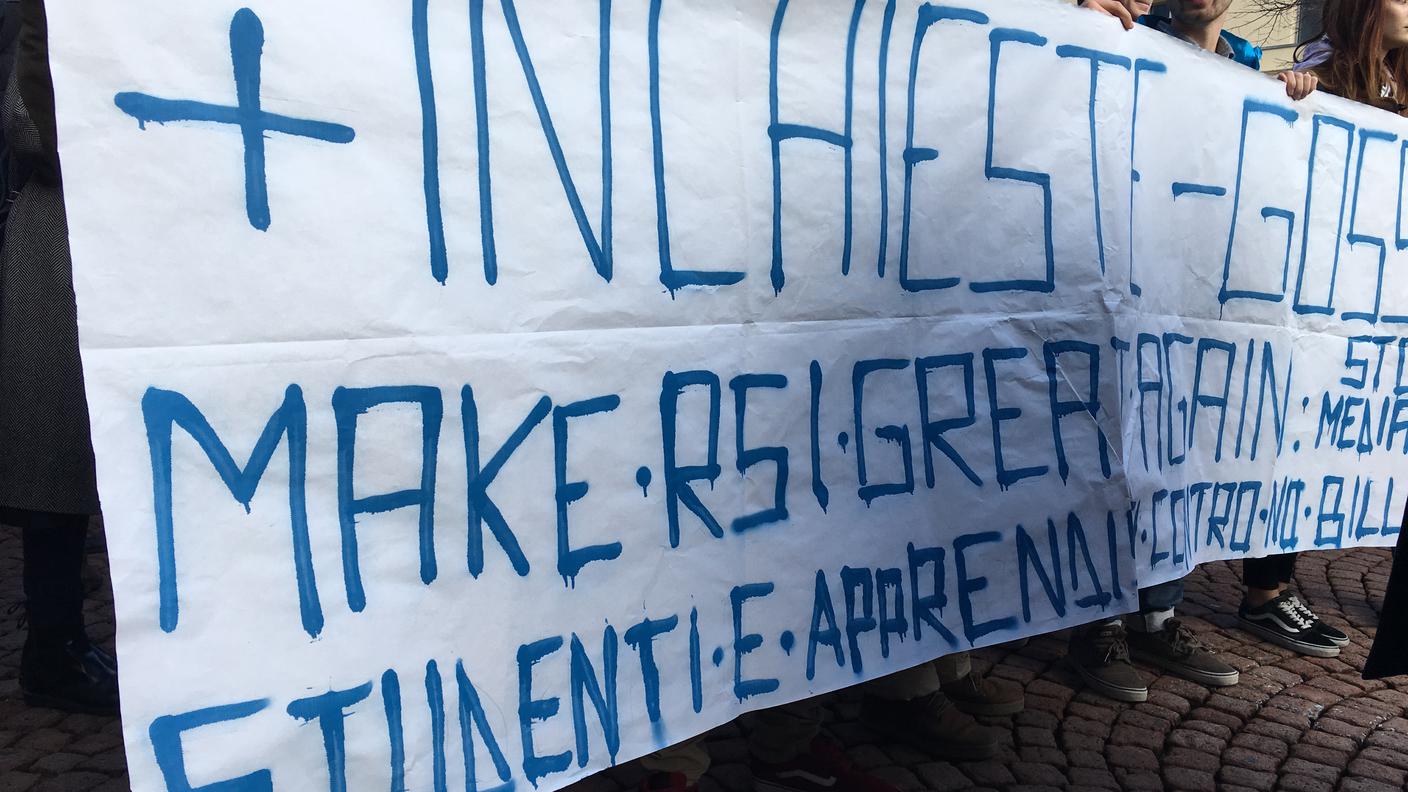 + INCHIESTE - GOSS
MAKE·RSI·GREAT·AGAIN:
STO
MEDIA
STUDENTI·E·APPRENDI ·CONTRO·NO·BILL